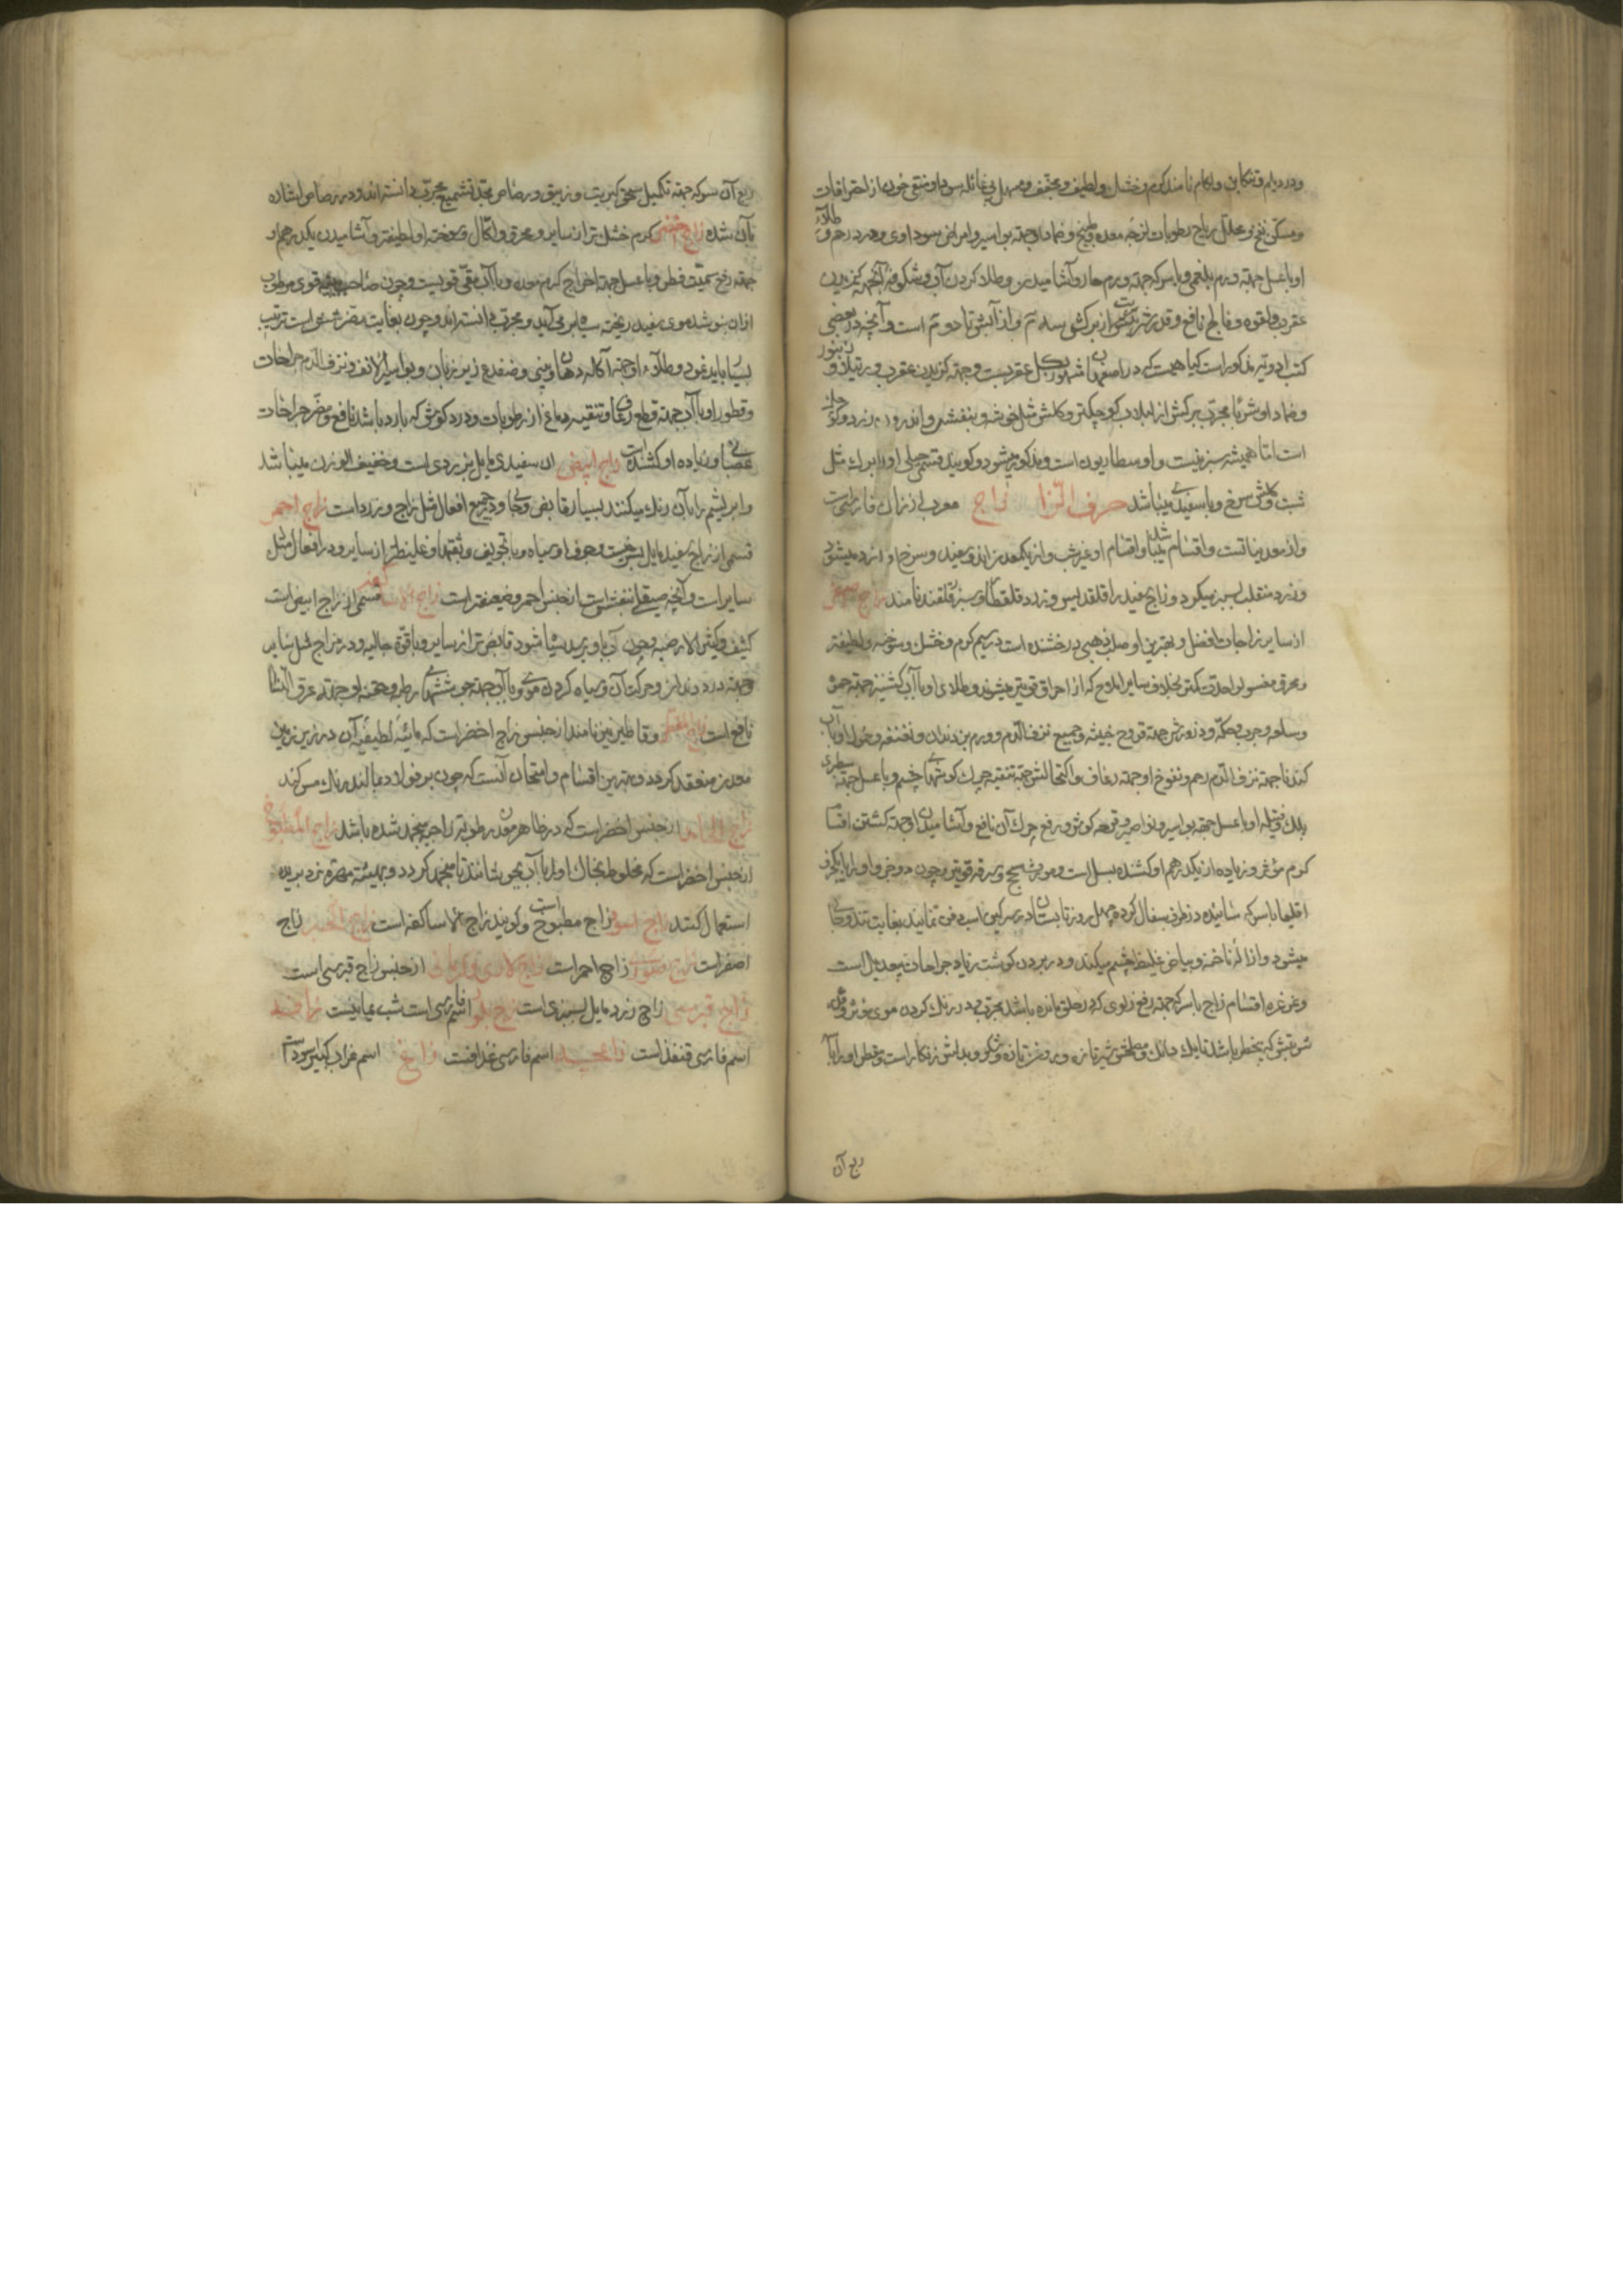 ودر دیلم و تنکابن ولکام نامند گرم و خشک و لطیف و مجفف و مسهل بی غائله سودا و منقی خون از احتراقات
ومسکن نفخ و محلل ریاح و رطوبات لزجه معده و طبیخ و ضماد او جهته بواسیر و امراض سوداوی و درد رحم و طلاء
او با عسل جهته ورم بلغمی و با سرکه جهته ورم حار و آشامیدن و طلا کردن آب و شکوفه آن جهته گزیدن
عقرب و لقوه و فالج نافع و قدر شربتش از برگش سه درم و از آبش تا ده درم است و آنچه در بعضی
کتب ادویه مذکور است گیاهیست که در اصفهان مشهور بگل عقربست و جهته گزیدن عقرب و رتیلا و زنبور
وضماد او شربا مجرب برگش از لبلاب کوچکتر و گلش مثل خوشه و بنفش و اندرون زرد و
است اما همیشه سبز نیست و اوسطاریون است و مذکور میشود و گویند قسم جبلی او را برگ مثل
شبت و گلش سرخ و با سفیدی میباشد حرف الزا زاج معرب از زاک فارسی است
واز معدنیاتست و اقسام میباشد و اقسام او غیر شب و از یک معدن اند و سفید و سرخ او زرد میشود
وزرد منقلب بسبز میگردد و زاج سفید را قلقدیس و زرد قلقطار و سبز را قلقند نامند زاج اصفر
از سایر زاجات افضل و بهترین او صلب ذهبی درخشنده است در سیم گرم و خشک و سوخته او لطیفتر
ومحرق مغسول او احدت کمتر بخلاف سایر املاح که از احراق قویتر میشوند و طلای او با آب گشنیز جهته حمره
وساعیه و جرب و حکه و ذرورش جهته قروح خبیثه و جمیع نزف الدم و ورم بن دندان و نفعنفه و حمول او با آب
گندنا جهته نزف الدم رحم و نفوخ او جهته رعاف و اکتحالش جهته تنقیه چرک گوشهای چشم و با عسل جهته سطبری
پلک و فتیله او با عسل جهته بواسیر و نواصیر و قرحه گوش و رفع چرک آن نافع و آشامیدن او جهته کشتن اقسام
کرم مؤثر و زیاده از یکدرهم او کشنده بسل است و مورث سحج و سرفه قویتر و چون دو جزو او را با یکجزو
اقلیمیا با سرکه سائیده در ظرف سفال کرده چهل روز تابستان در سرگین اسب دفن نمایند بغایت تند و حاد
میشود و ازاله ناخنه و بیاض غلیظ چشم میکند و در بردن گوشت زیاد جراحات بیعدیل است
وغرغره اقسام زاج با سرکه جهته رفع زلوی که در حلق مانده باشد مجرب و در رنگ کردن موی مؤثر و قدر
شربتش که بیخطر باشد تا یک دانگ و مصلحش شیر تازه و روغن تازه و شکر و بدلش زنگار است و قطور او را با
ربع آن
ربع آن سرکه جهته تکمیل سحق کبریت و زیبق و رصاص بحد تشمیع مجرب دانسته اند و در رصاص اشاره
بآن شده زاج اخضر گرم و خشک تر از سایر و محرق و اکال و سوخته او لطیفتر و آشامیدن یکدرهم او
جهته رفع سمیت فطر و با عسل جهته اخراج کرم معده و با آب مقی قویست و چون صاحب قوی مرطوب
از ان بنوشد موی سفید ریخته سیاه برمی آید و مجرب دانسته اند و چون بغایت مضر شش است ترتیب
بسیار باید نمود و طلاء او جهته آکاله دهان و بینی و ضفدع زیر زبان و بواسیر الانف و نزف الدم جراحات
وقطور او با آب جهته قطع رعاف و تنقیه دماغ از رطوبات و درد گوش که بارد باشد نافع و مضر جراحات
عصبانی و زیاده او کشنده است زاج ابیض ان سفیدی مایل بزردی است و خفیف الوزن میباشد
وابریشم را بآن رنگ میکنند بسیار قابض و حاد و در جمیع افعال مثل زاج زرد است زاج احمر
قسمی از زاج سفید مایل بسرخیست و جوف او سیاه و با تجویف و ثقبها و غلیظتر از سایر و در افعال مثل
سایر است و آنچه صیقلی و بنفش است از جنس احمر و ضعیفتر است زاج الاساکفه قسمی از زاج ابیض است
کثیف و کثیر الارضیه و چون آب باو برسد سیاه شود قابض تر از سایر و با قوة جالیه و در مزاج مثل سایر
وجهته درد دندان و حرکت آن و سیاه کردن موی و با آب جهته جوششهای رطبه و حقنه او جهته عرق النسا
نافع است زاج القطر و قاطرمین نامند از جنس زاج اخضر است که مائیه لطیفه آن در زیر زمین
معدن منعقد گردد و بهترین اقسام و امتحان آنست که چون بر فولاد بمالند رنگ مس کند
زاج الجامد از جنس اخضر است که در ظاهر معدن رطوبه زاجیه منجمد شده باشد زاج المطبوخ
از جنس اخضر است که مخلوط بخاک او را با آب بجوشانند تا منجمد گردد و بهیئته مهره نرد بریده
استعمال کنند زاج اسود زاج مطبوخ است و گویند زاج الاساکفه است زاج الحبر زاج
اصفر است زاج سوری زاج احمر است زاج کلاری و کرمانی از جنس زاج قبرسی است
زاج قبرسی زاج زرد مایل بسبزی است زاج بلور اسم فارسی است شب یمانیست زافه
اسم فارسی قنفذ است زاغچه اسم فارسی غدافست زاغ اسم غراب کبیر سود است